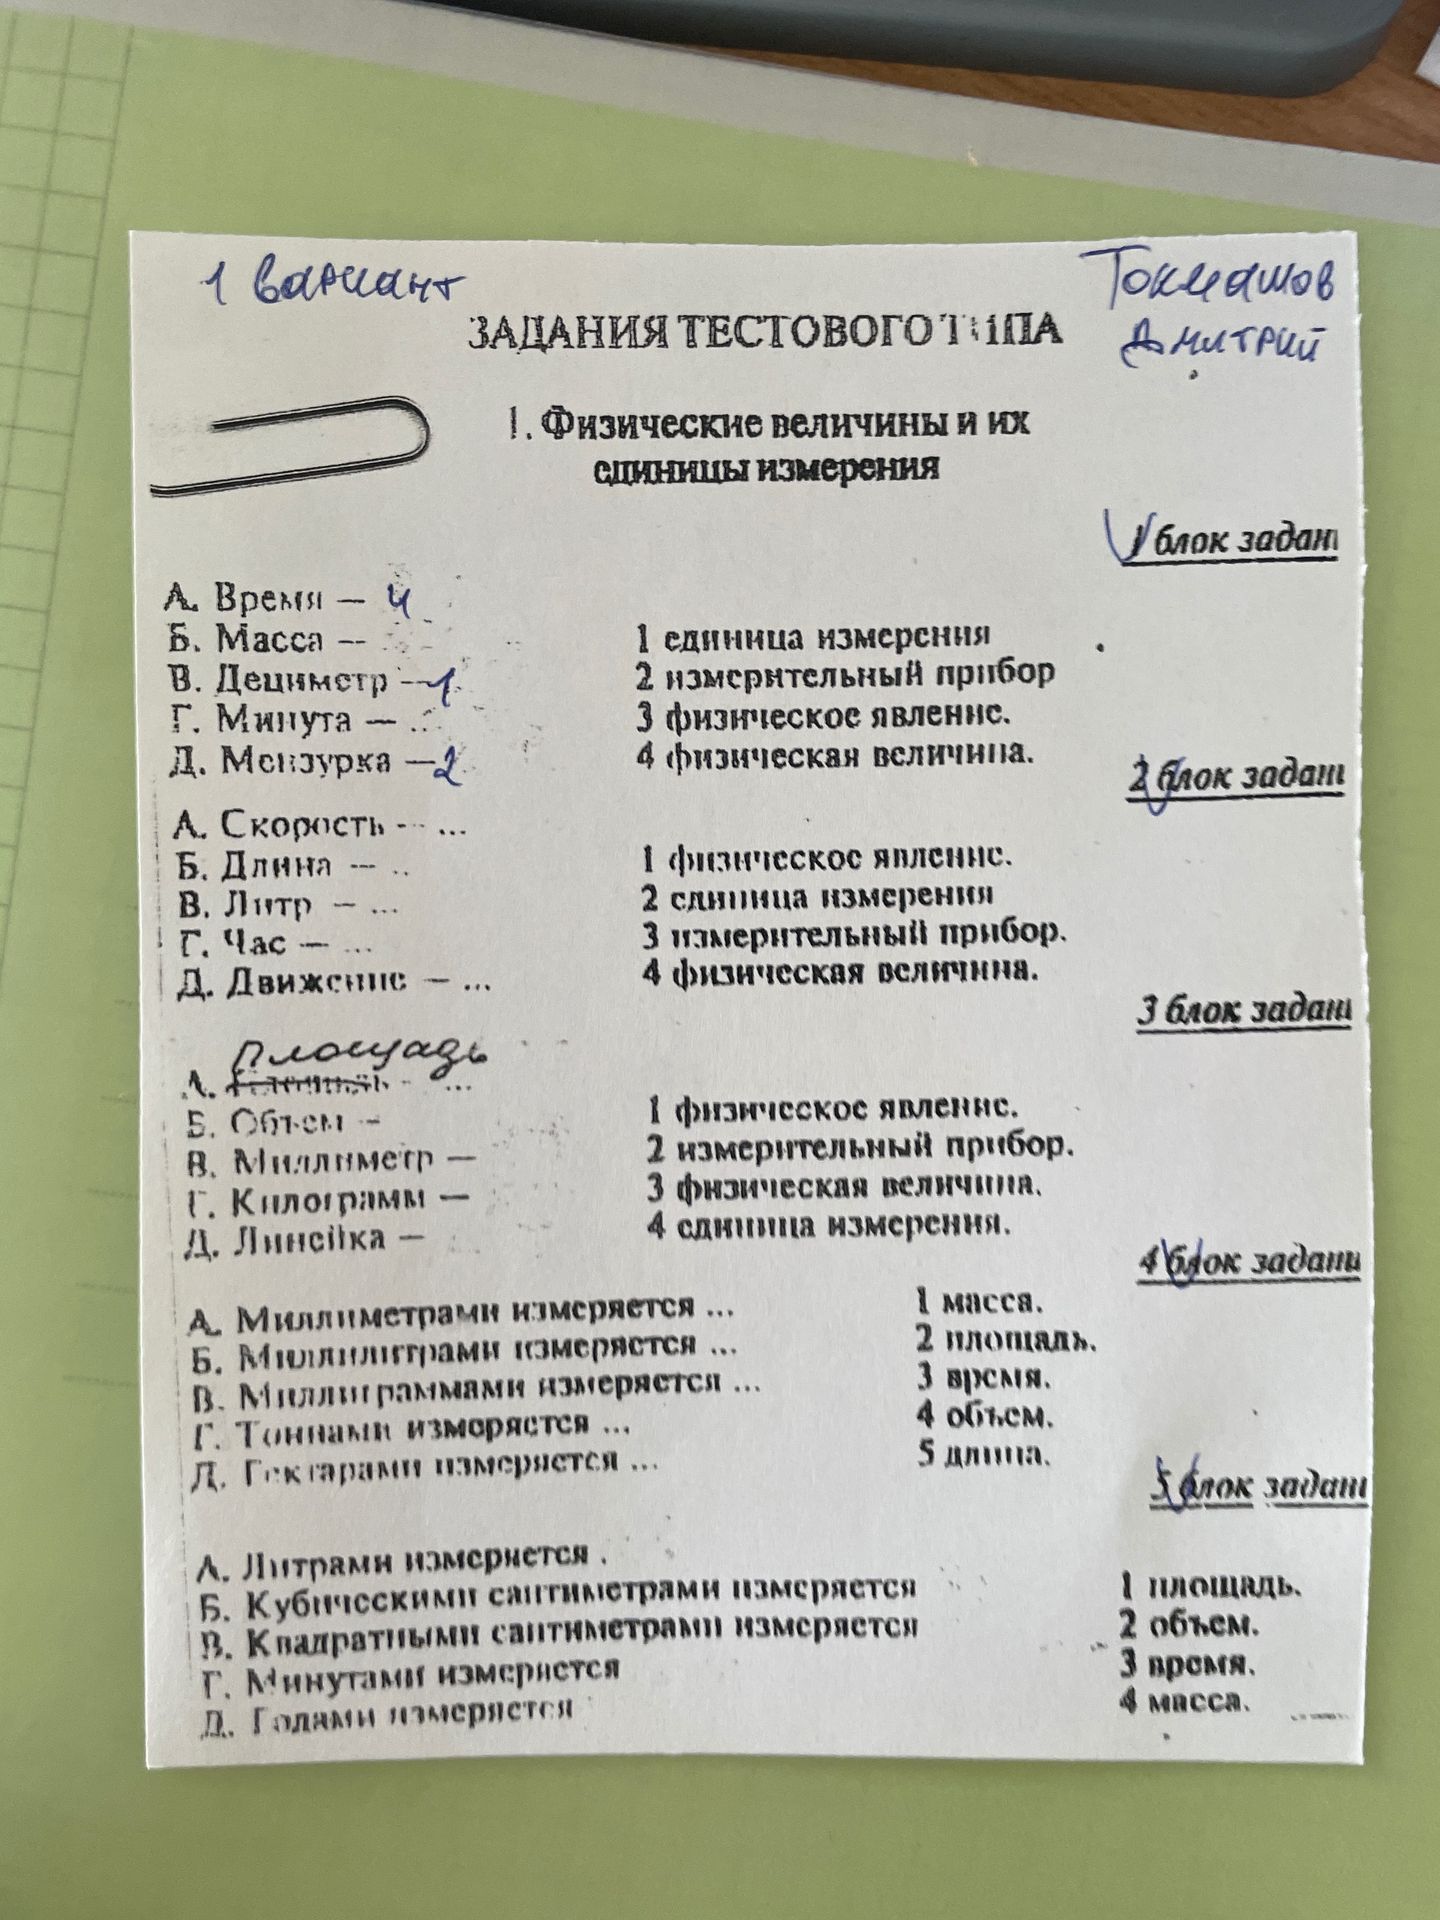 1 вариант
Токмашов
Дмитрий
ЗАДАНИЯ ТЕСТОВОГО ТИПА
1. Физические величины и их
единицы измерения
1 блок задани
А. Время — 4
Б. Масса —
В. Дециметр — 1
Г. Минута — ..
Д. Мензурка — 2
1 единица измерения
2 измерительный прибор
3 физическое явление.
4 физическая величина.
2 блок задани
А. Скорость — ...
Б. Длина — ..
В. Литр — ...
Г. Час — ...
Д. Движение — ...
1 физическое явление.
2 единица измерения
3 измерительный прибор.
4 физическая величина.
3 блок задани
площадь
А. - ...
Б. Объем –
В. Миллиметр —
Г. Килограмм —
Д. Линейка —
1 физическое явление.
2 измерительный прибор.
3 физическая величина.
4 единица измерения.
4 блок задани
А. Миллиметрами измеряется ...
Б. Миллилитрами измеряется ...
В. Миллиграммами измеряется ...
Г. Тоннами измеряется ...
Д. Гектарами измеряется ...
1 масса.
2 площадь.
3 время.
4 объем.
5 длина.
5 блок задани
А. Литрами измеряется .
Б. Кубическими сантиметрами измеряется
В. Квадратными сантиметрами измеряется
Г. Минутами измеряется
Д. Годами измеряется
1 площадь.
2 объем.
3 время.
4 масса.